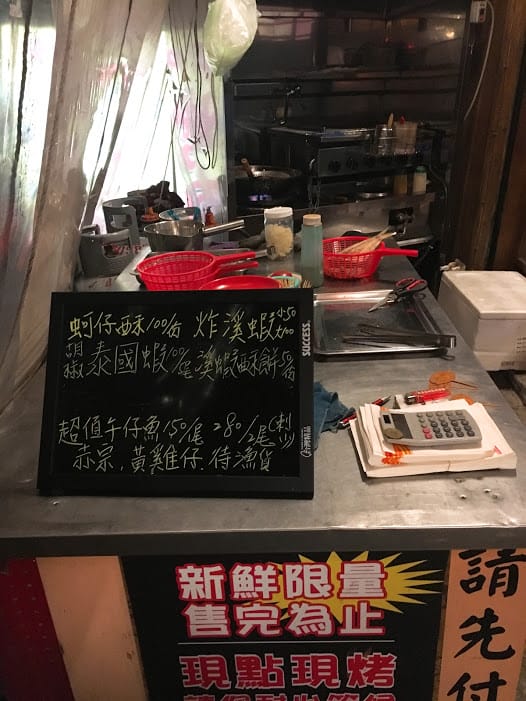 蚵仔酥100/份 炸溪蝦小50大100
胡椒泰國蝦100/5尾溪蝦酥餅50/份
超值午仔魚150/尾 280/2尾(刺少)
赤呆.黃雞仔.待漁貨
SUCCESS.
新鮮限量
售完為止
現點現烤
請先付